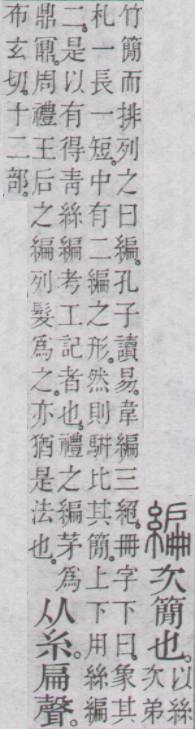 編 次簡也。以絲
次弟
竹簡而排列之曰編。孔子讀易。韋編三絕。冊字下曰。象其
札一長一短。中有二編之形。然則駢比其簡。上下用絲編
二。是以有得靑絲編考工記者也。禮之編茅爲
鼎鼏。周禮王后之編列髮爲之。亦猶是法也。
从糸。扁聲。
布玄切。十二部。